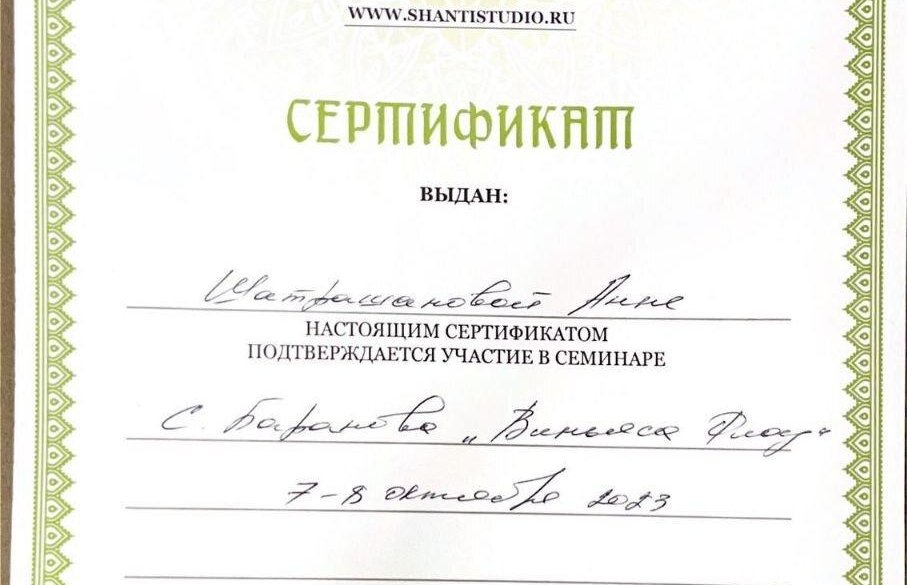 WWW.SHANTISTUDIO.RU
СЕРТИФИКАТ
ВЫДАН:
Шатрашановой Анне
НАСТОЯЩИМ СЕРТИФИКАТОМ
ПОДТВЕРЖДАЕТСЯ УЧАСТИЕ В СЕМИНАРЕ
С. Баранова „Виньяса Флоу“
7-8 октября 2023